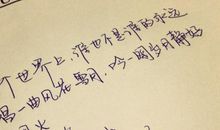 个世界上，谁也不是谁的永远
唱一曲风花雪月，吟一阕岁月静好